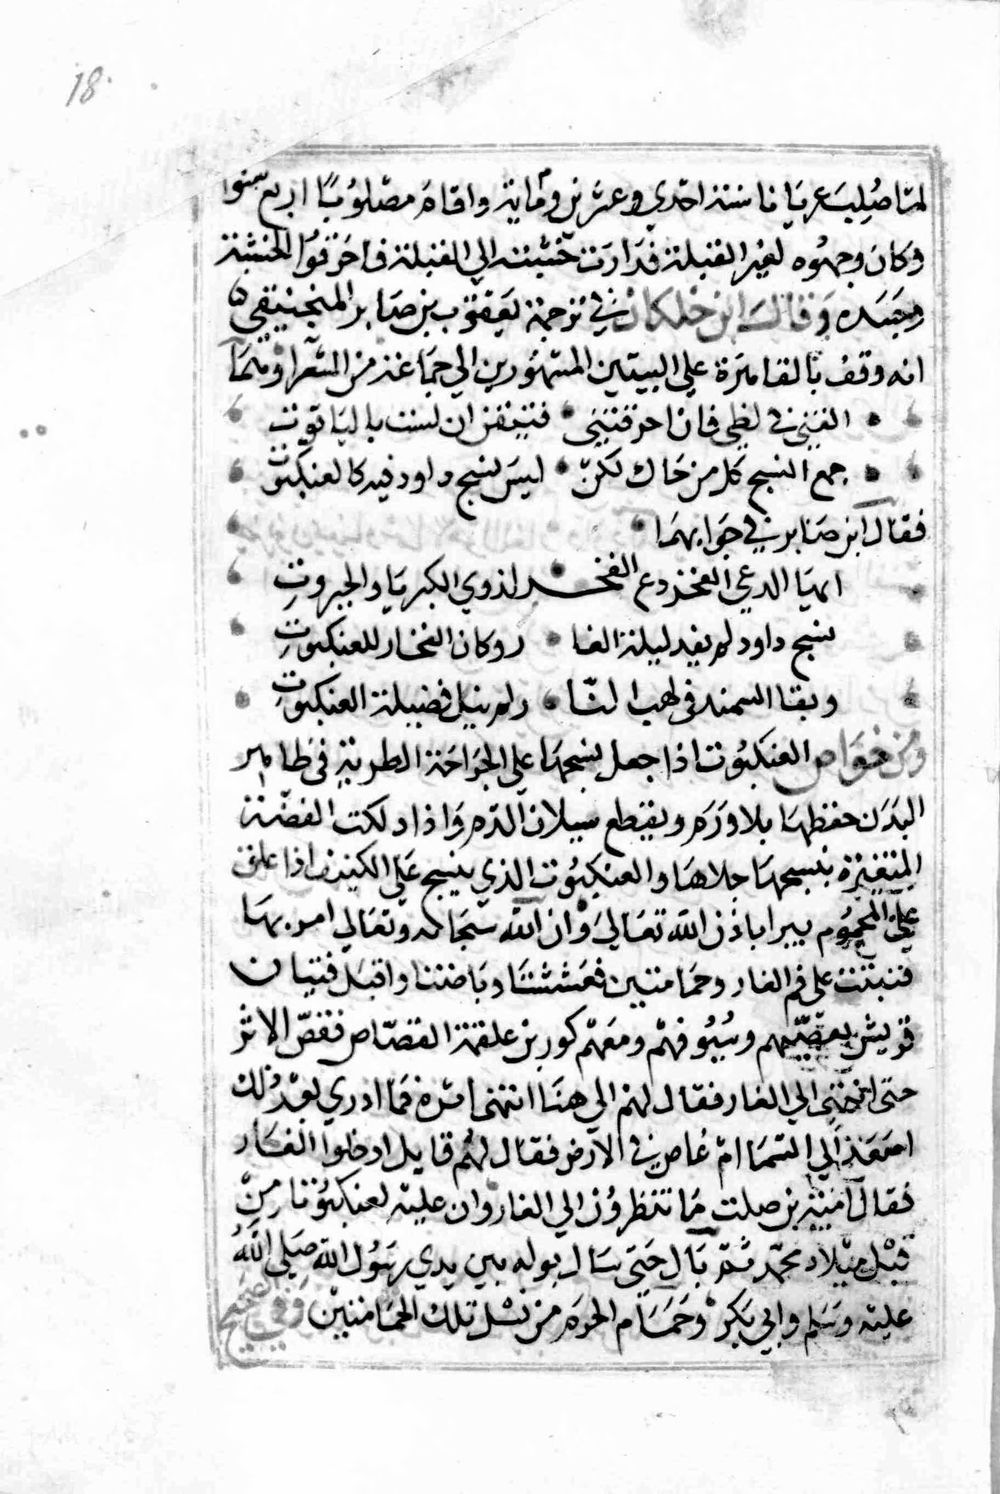 18
لما صلب عريانا سنة احدي وعشرين وماية واقام مصلوبا اربع سنوا
وكان وجهوه لغير القبلة فدارت خشبته الي القبلة فاحرقوا الخشبة
وجسده وقال ابن خلكان في ترجمة يعقوب بن صابر المنجنيقي
انه وقف بالقاهرة علي البيتين المشهورين الي جماعة من الشعرا وهما
القني في لظي فان احرقتني فتيقن ان لست بالياقوت
جمع النسج كل من حاك لكن ليس نسج داود فيه كالعنكبوت
فقال ابن صابر في جوابهما
ايها المدعي الفخر دع الفخر لذوي الكبريا والجبروت
نسج داود لم يفد ليلة الغا ر وكان الفخار للعنكبوت
وبقا السمند في لهب النا ر لم يزيل فضيلة العنكبوت
ومن خواص العنكبوت اذا جعل نسجها علي الجراحة الطرية في ظاهر
البدن حفظها بلا ورم ويقطع سيلان الدم واذا دلكت الفضة
المتغيرة بنسجها جلاها والعنكبوت الذي ينسج علي الكنيف اذا علق
علي المحموم يبرا باذن الله تعالي وان الله سبحانه وتعالي امر بها
فنبتت علي فم الغار وحمامتين فعششتا وباضتا واقبل فتيان
قريش بعصيهم وسيوفهم ومعهم كور بن علقمة القصاص فقص الاثر
حتي انتهي الي الغار فقال لهم الي هنا انتهي اثره فما ادري بعد ذلك
اصعد الي السما ام غاص في الارض فقال لهم قايل ادخلوا الغار
فقال امية بن صلت ما تنظرون الي الغار وان عليه لعنكبوتا من
قبل ميلاد محمد ثم بال حتي سال بوله بين يدي رسول الله صلي الله
عليه وسلم وابي بكر وحمام الحرم من نسل تلك الحمامتين وفي الصحيح